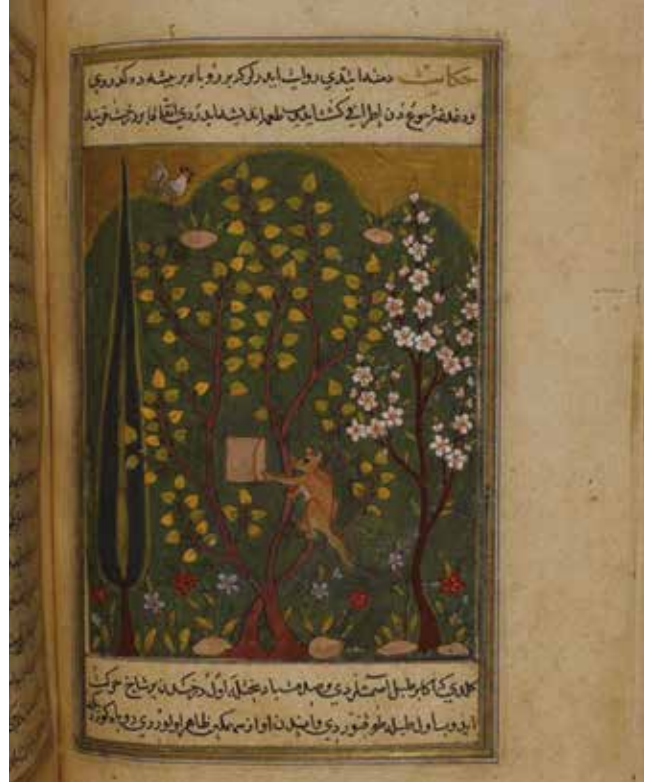 حكايت دمنه ايتدي روايت ايدرلر كه بر روباه بر بيشه ده كزردي
جوع دن اطرافي كشت ايدوب طعمه ايدردي اتفاقا بر درخت
كلدي كه اكا بر طبل اصمشلردي و باد اول درختدن بر شاخ حركت
ايدوب اول طبله طوقنوردي و اندن اواز سهمكين ظاهر اولوردي روباه